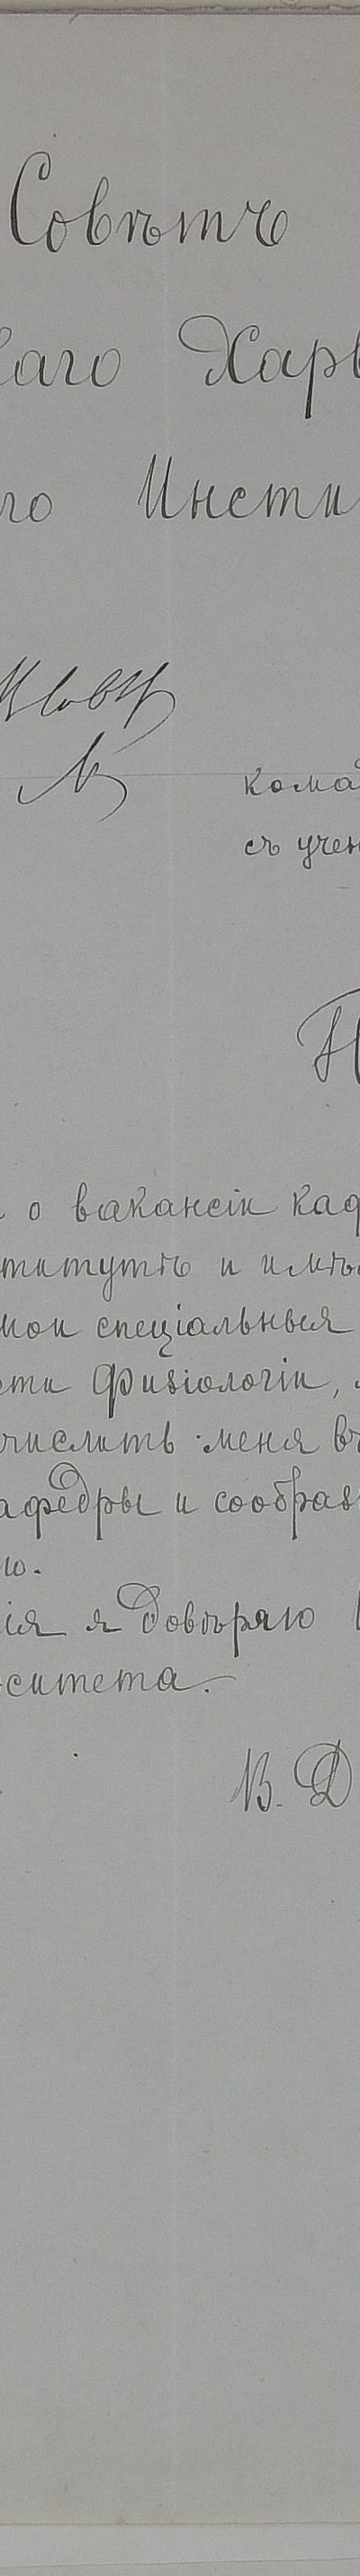 Совѣтъ
аго Харь
го Инсти
кома
съ учен
о вакансіи каф
титутѣ и имѣ
мои спеціальныя
сти Физіологіи,
числить меня въ
афедры и сообраз
ю.
ія я довѣряю
ситета.
В. Д